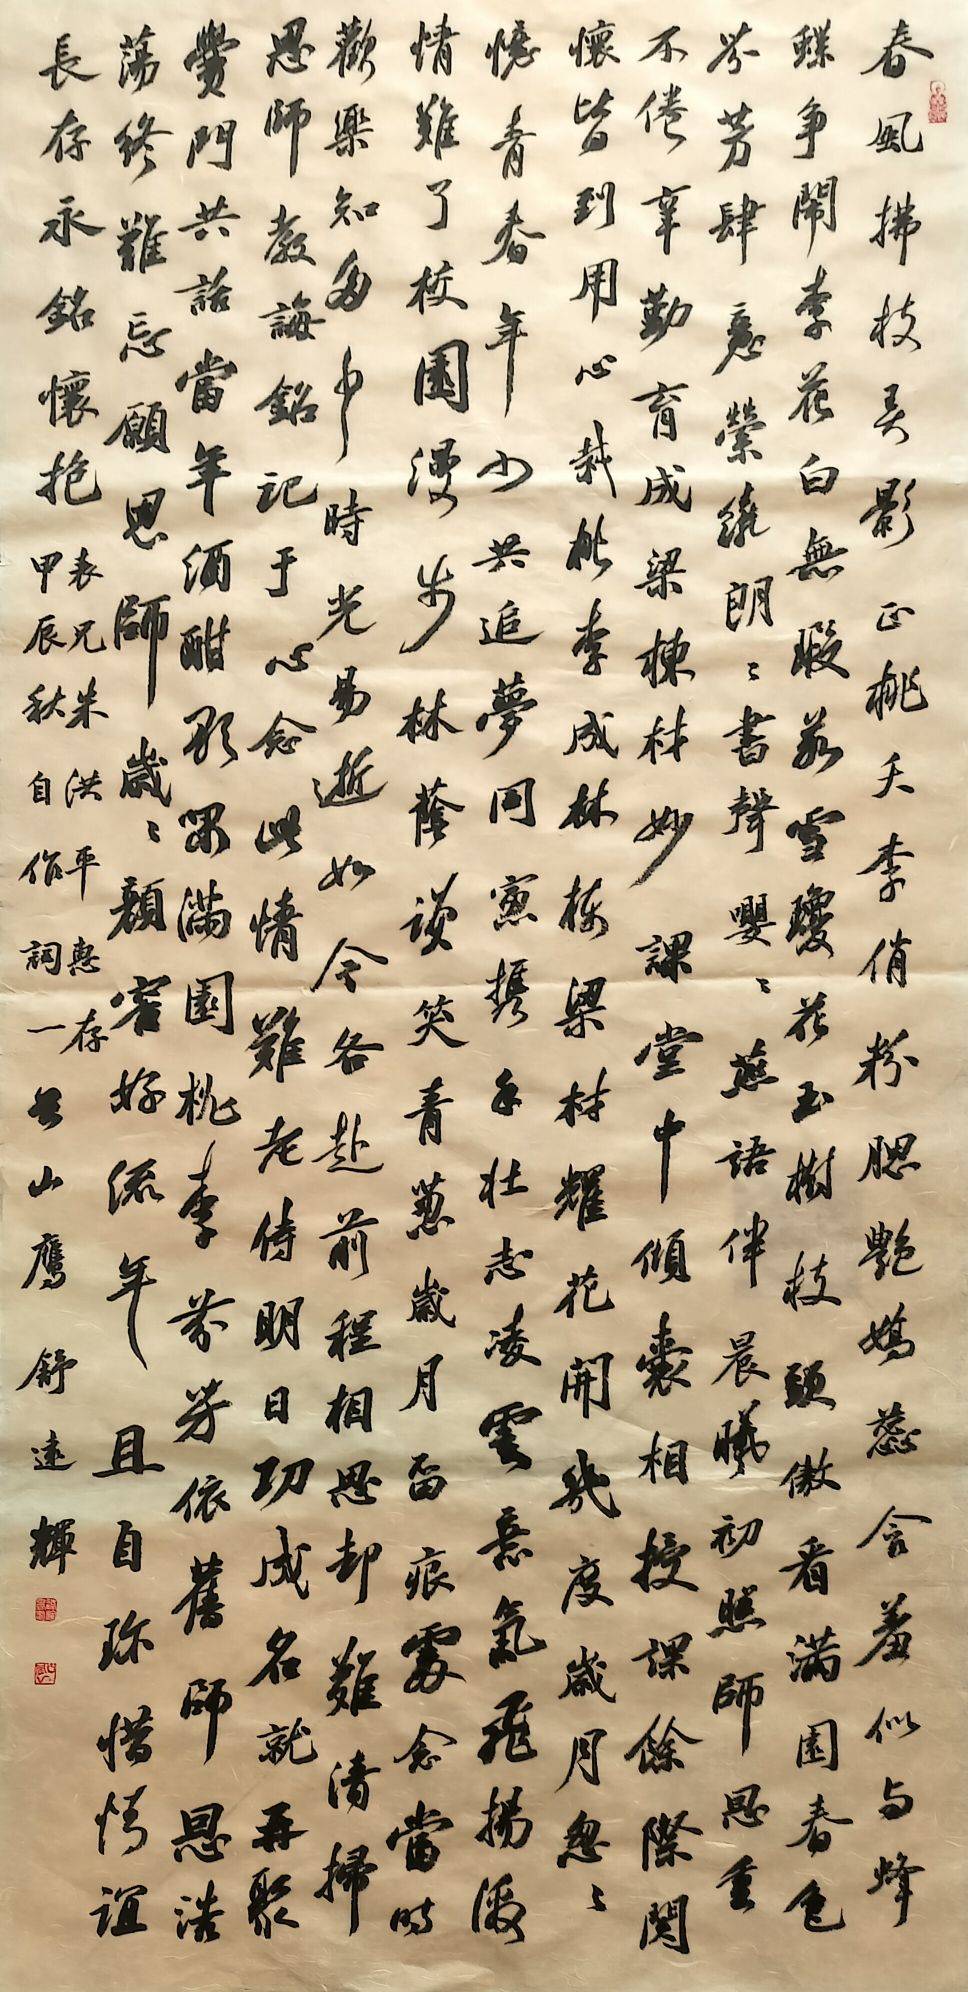 春風拂枝弄影正桃夭李俏粉腮艷嬌蕊含羞似与蜂
蝶争鬧李花白無瑕若雪瓊花玉樹枝頭傲看滿園春色
芬芳肆意縈繞朗〻書聲嚶〻燕語伴晨曦初照師恩重
不倦辛勤育成梁棟材妙課堂中傾囊相授課餘際関
懷皆到用心栽桃李成林棟梁材耀花開幾度歲月怱〻
憶青春年少共追夢同窻携手壮志凌雲意氣飛揚激
情難了校園漫步林蔭談笑青葱歲月留痕處念當時
歡樂知多少時光易逝如今各赴前程相思却難清掃
恩師教誨銘記于心念此情難老待明日功成名就再聚
黌門共話當年酒酣歌罷滿園桃李芬芳依舊師恩浩
蕩終難忘願恩師歲〻顏容好流年且自珍惜情誼
長存永銘懷抱
表兄朱洪平惠存
甲辰秋自作詞一首山鷹舒遠輝